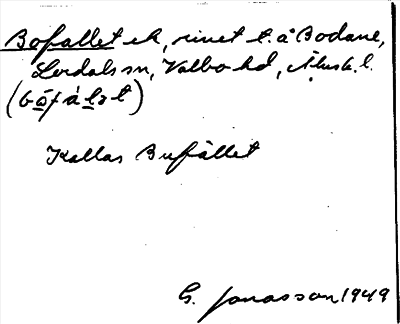 Bofallet ek, rivet t. å Bodane,
Lerdals sn, Valbo hd, Älvsb. l.
(bo᷈fáḷət)
Kallas Bufället
G. Jonasson 1949